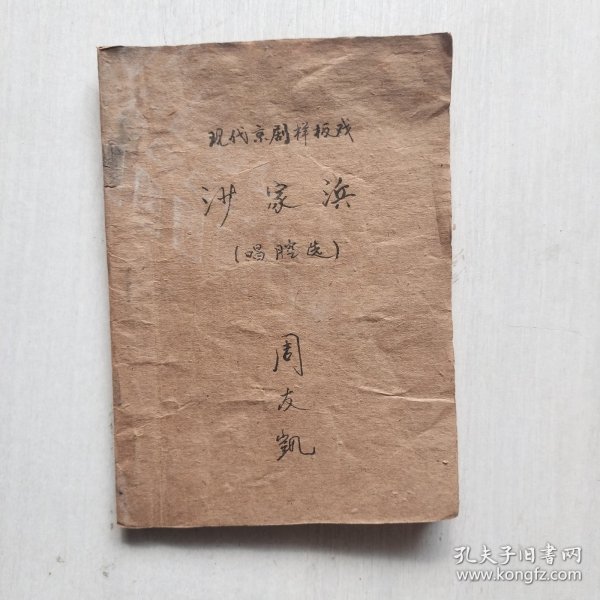 现代京剧样板戏
沙家浜
(唱腔选)
周友凯
孔夫子旧书网
www.kongfz.com